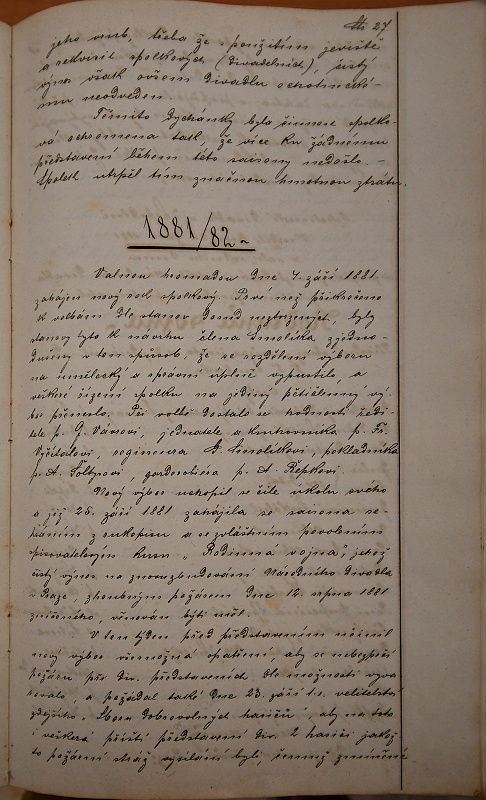 27
jeho vrub, třeba že s použitím jeviště
a rekvisit spolkových (divadelních), čistý
výnos však ovšem divadlu ochotnické-
mu neodveden.
Těmito dýchánky byla činnost spolko-
vá ochromena tak, že více ku žádnému
představení během této saisony nedošlo. -
Spolek utrpěl tím značnou hmotnou ztrátu.
1881/82
Valnou hromadou dne 7. září 1881
zahájen nový rok spolkový. Prvé než přikročeno
k volbám dle stanov dosud nezměněných, byly
stanovy tyto k návrhu člena Smolíka zjedno-
dušeny v tom způsob, že se rozdělení výboru
na umělecký a správní úplně vypustilo, a
veškeré řízení spolku na jediný pětičlenný vý-
bor přeneslo. Při volbě dostalo se hodnosti ředi-
tele p. G. Vávrovi, jednatele a knihovníka p. Fr.
Vyčítalovi, regisseura G. Smolíkovi, pokladníka
p. A. Šoltysovi, garderobiera p. A. Řepkovi.
Nový výbor uchopil se čile úkolu svého
a již 25. září 1881 zahájila se saisona se-
hráním z rukopisu a se zvláštním povolením
spisovatelovým kusu „Rodinná vojna", jehož
čistý výnos na znovuzbudování Národního divadla
v Praze, zhoubným požárem dne 12. srpna 1881
zničeného, věnován býti měl.
V tom týden před představením učinil
nový výbor všemožná opatření, aby se nebezpečí
požáru při div. představeních dle možnosti vyva-
rovalo, a požádal také dne 23. září t.r. velitelství
zdejšího „Sboru dobrovolných hasičů", aby na toto
i veškerá příští představení div. 2 hasiči jakož
to požární stráž vysíláni byli, čemuž zmíněné